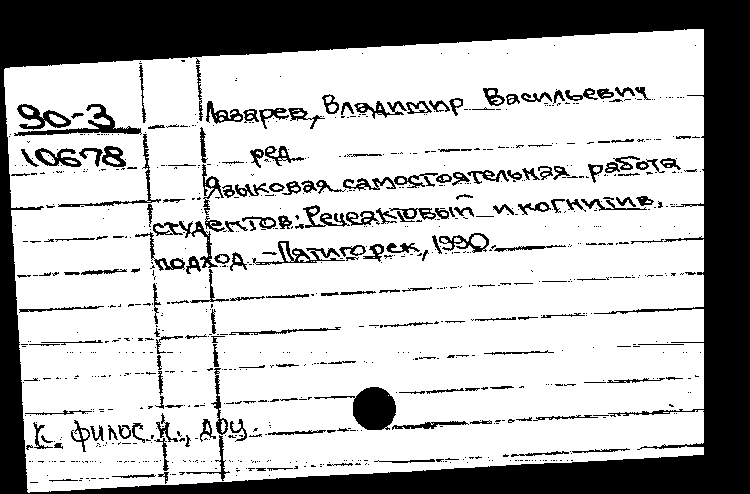 90-3
10678
Лазарев, Владимир Васильевич
ред.
Языковая самостоятельная работа
студентов: Речеактовый и когнитив.
подход. - Пятигорск, 1990.
К. филос. н., доц.